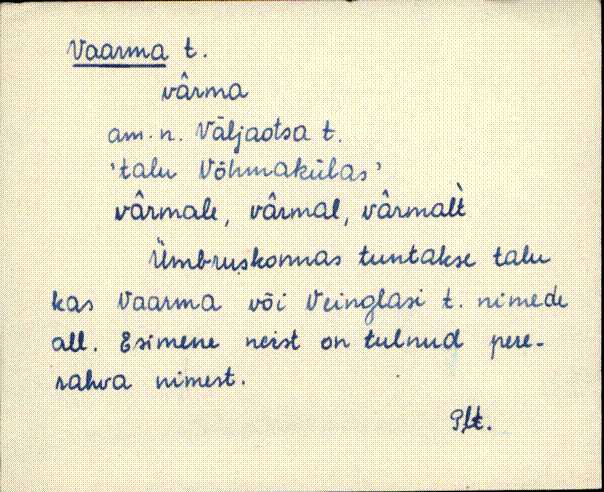 Vaarma t.
vârma
am. n. Väljaotsa t.
'talu Võhmakülas'
vârmale, vârmal, vârmalt̀
Ümbruskonnas tuntakse talu
kas Vaarma või Veinglasi t. nimede
all. Esimene neist on tulnud pere-
rahva nimest.
Plt.